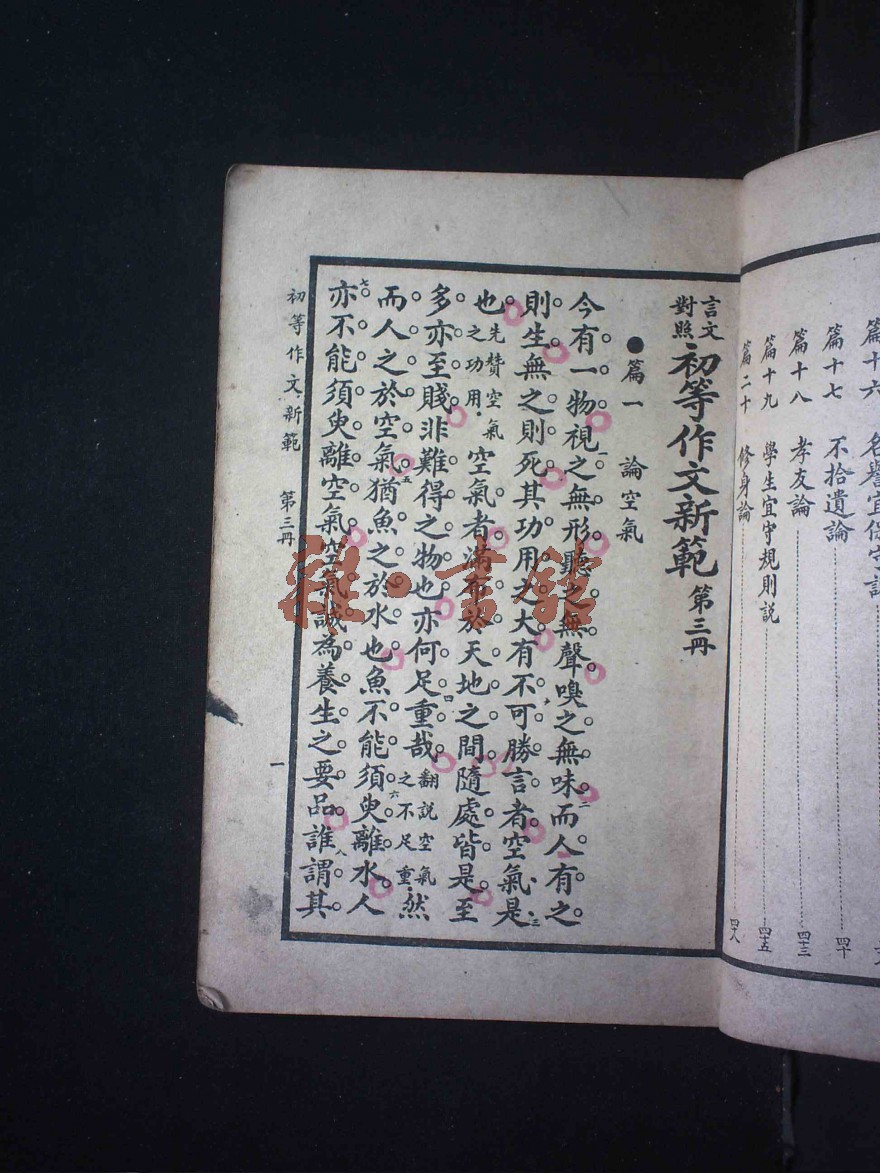 篇十六 名譽宜保守說
篇十七 不拾遺論 四十
篇十八 孝友論 四十三
篇十九 學生宜守規則説 四十五
篇二十 修身論 四十八
言文對照 初等作文新範 第三冊
●篇一 論空氣
今有一物視之無形聽之無聲嗅之無味而人有之
則生無之則死其功用之大有不可勝言者空氣是
也先贊空氣之功用空氣者滿布於天地之間隨處皆是至
多亦至賤非難得之物也亦何足重哉翻説空氣之不足重然
而人之於空氣猶魚之於水也魚不能須臾離水人
亦不能須臾離空氣空氣誠為養生之要品誰謂其
初等作文新範 第三冊 一
雜·書館